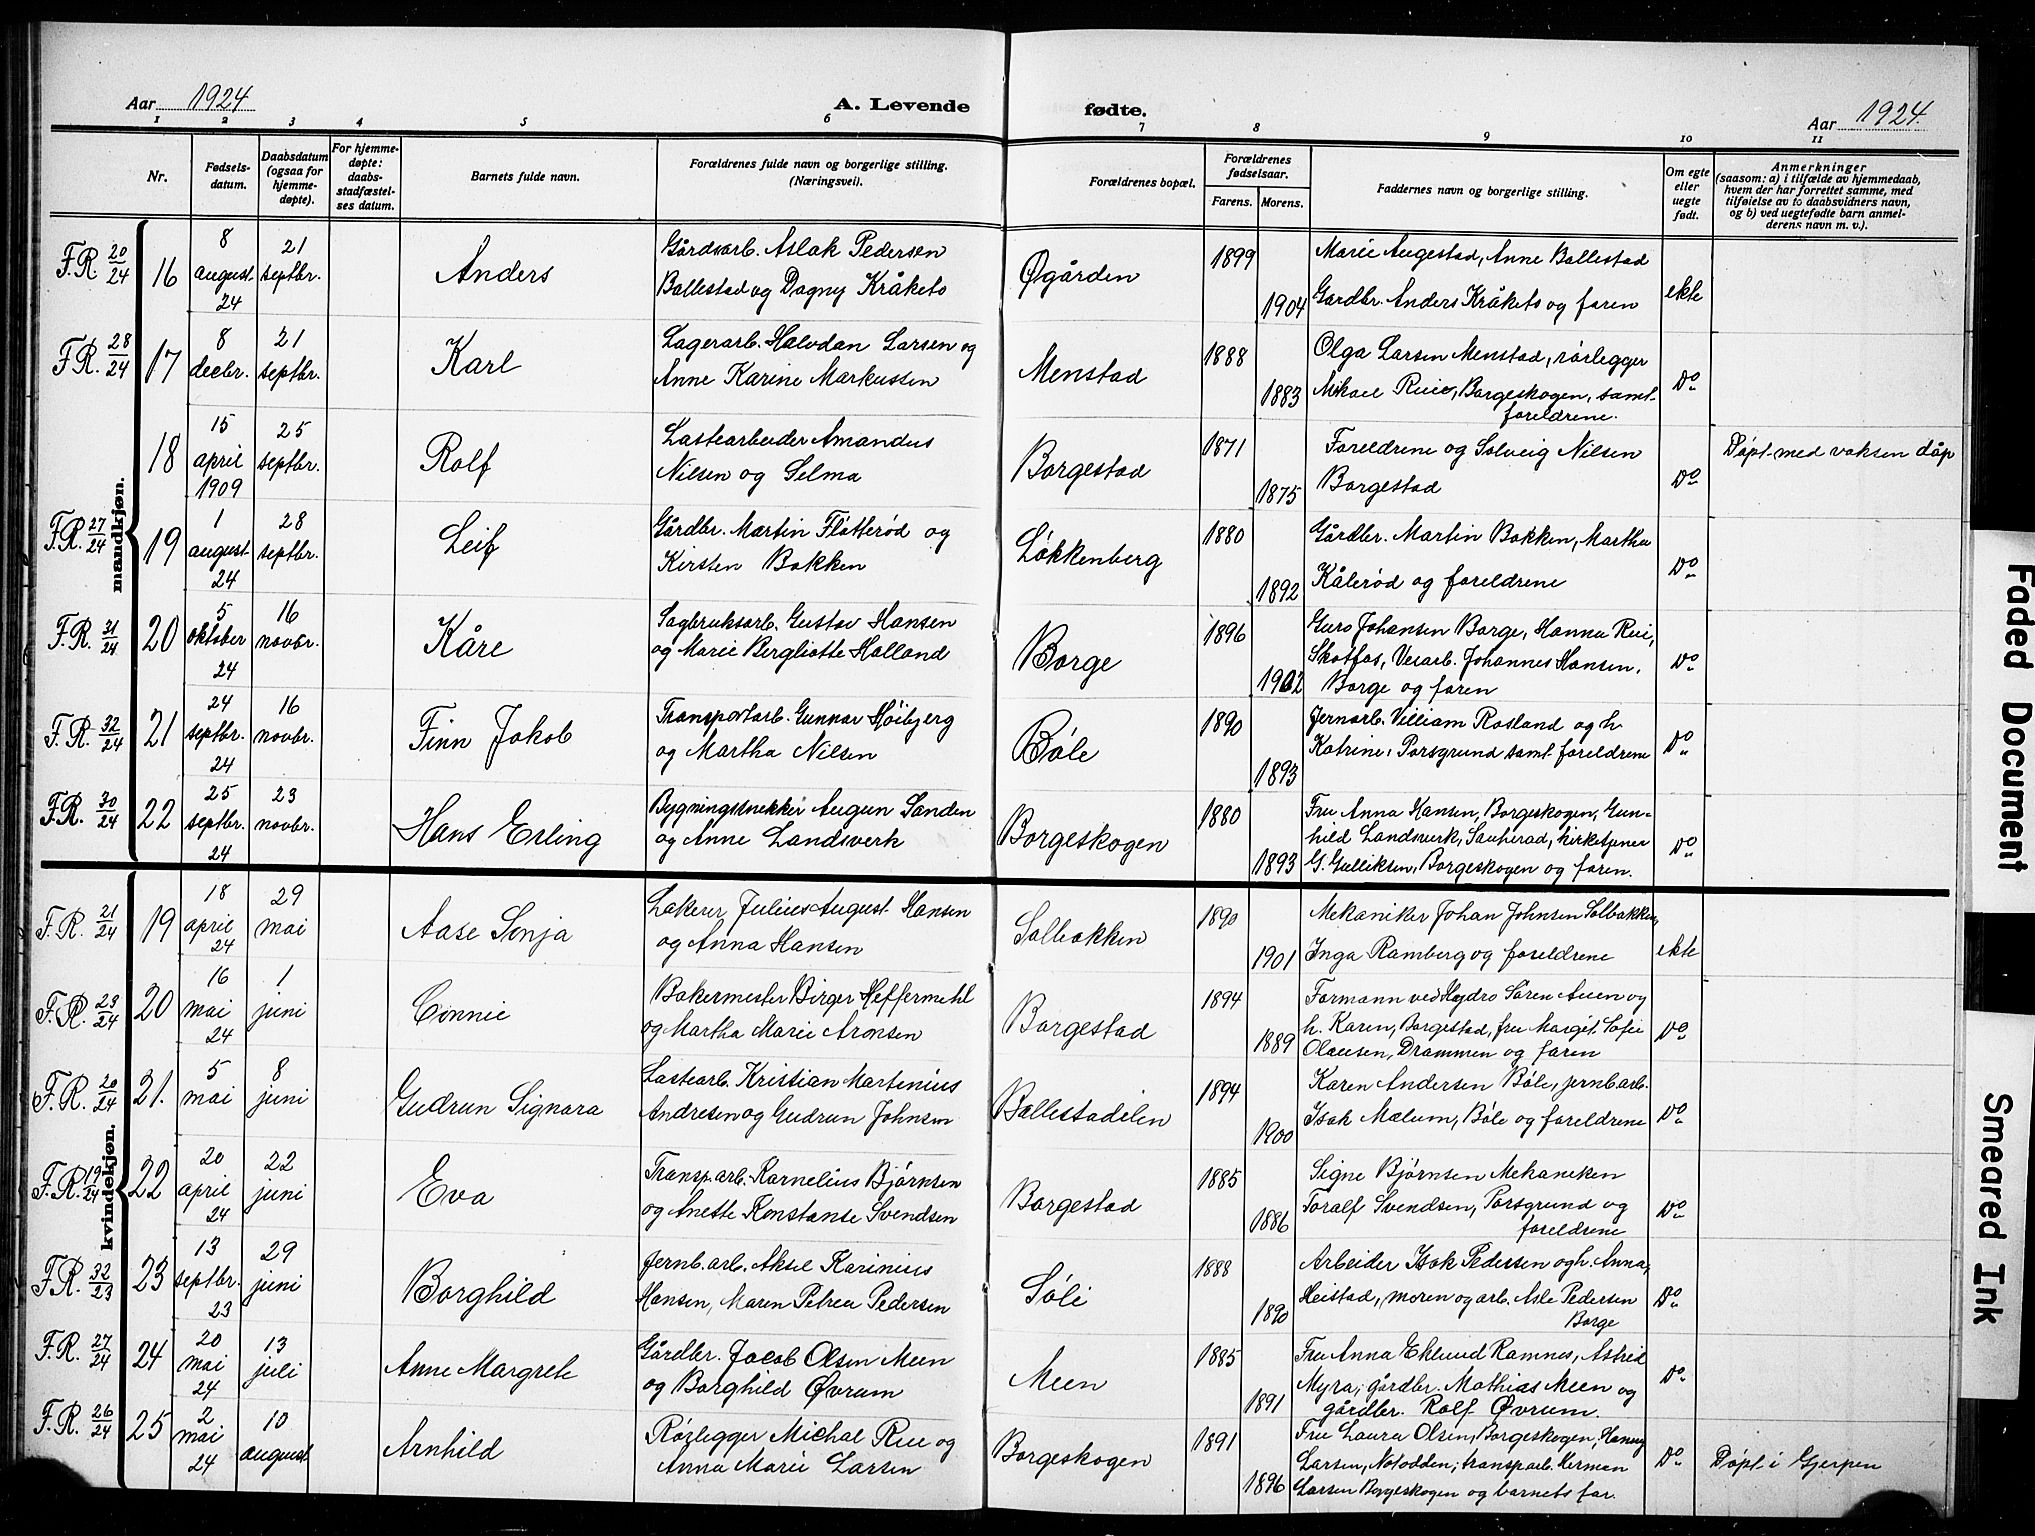 Aar 1924
A. Levende fødte.
Aar 1924.
1 2 3 4 5 6 7 8 9 10 11
Nr.
Fødsels-
datum.
Daabsdatum
(ogsaa for
hjemme-
døpte).
For hjemme-
døpte:
daabs-
stadfæstel-
ses datum.
Barnets fulde navn.
Forældrenes fulde navn og borgerlige stilling.
(Næringsvei).
Forældrenes bopæl.
Forældrenes
fødselsaar.
Farens. Morens.
Faddernes navn og borgerlige stilling.
Om egte
eller
uegte
født.
Anmerkninger
(saasom: a) i tilfælde av hjemmedaab,
hvem der har forrettet samme, med
tilføielse av to daabsvidners navn,
og b) ved uegtefødte barn anmel-
derens navn m. v.).
mandkjøn.
F.R. 20/24 16 8 august 24 21 septbr. Anders
Gårdsarb. Aslak Pedersen
Ballestad og Dagny Kråkets
Øgården 1899 1904
Marie Augestad, Anne Ballestad
Gardbr. Anders Kråkets og faren
ekte
F.R. 28/24 17 8 decbr. 21 septbr. Karl
Lagerarb. Halvdan Larsen og
Anne Karine Markussen
Menstad 1888 1883
Olga Larsen Menstad, rørlegger
Mikael Ruie, Borgeskogen, samt
foreldrene.
Do
18 15 april 1909 25 septbr. Rolf
Lastearbeider Amandus
Nilsen og Selma
Borgestad 1871 1875
Foreldrene og Solveig Nilsen
Borgestad
Do
Døpt med voksen dåp
F.R. 27/24 19 1 august 24 28 septbr. Leif
Gårdbr. Martin Flåtterød og
Kirsten Bakken
Løkkenberg 1880 1892
Gårdbr. Martin Bakken, Martha
Kålerød og foreldrene
Do
F.R. 31/24 20 5 oktober 24 16 novbr. Kåre
Sagbruksarb. Gustav Hansen
og Marie Bergliotte Holland
Borge 1896 1902
Guro Johansen Borge, Hanna Rui,
Skotfos, Verarb. Johannes Hansen,
Borge og faren
Do
F.R. 32/24 21 24 septbr. 24 16 novbr. Finn Jakob
Transportarb. Gunnar Høibjerg
og Martha Nilsen
Bøle 1890 1893
Jernarb. Villiam Rosland og h.
Katrine, Porsgrund samt foreldrene
Do
F.R. 30/24 22 25 septbr. 24 23 novbr. Hans Erling
Bygningssnekker Augun Sanden
og Anne Landsverk
Borgeskogen 1880 1893
Fru Anna Hansen, Borgeskogen, Gun-
hild Landsverk, Sauherad, kirketjener
G. Gulliksen, Borgeskogen og faren.
Do
kvindekjøn.
F.R. 21/24 19 18 april 24 29 mai Aase Sonja
Lakerer Julius August Hansen
og Anna Hansen
Solbakken 1890 1901
Mekaniker Johan Johnsen Solbakken,
Inga Ramberg og foreldrene
ekte
F.R. 23/24 20 16 mai 24 1 juni Connie
Bakermester Birger Heffermehl
og Martha Marie Aronsen
Borgestad 1894 1889
Formann ved Hydro Søren Auen og
h. Karen, Borgestad, fru Margit Sofie
Olausen, Drammen og faren
Do
F.R. 20/24 21. 5 mai 8 juni Gudrun Signora
Lastearb. Kristian Martinius
Andresen og Gudrun Johnsen
Ballestadilen 1894 1900
Karen Andersen Bøle, jernb.arb.
Isak Mælum, Bøle og foreldrene
Do
F.R. 19/24 22 20 april 24 22 juni Eva
Transp.arb. Kornelius Bjørnsen
og Anette Konstanse Svendsen
Borgestad 1885 1886
Signe Bjørnsen Mekaniken
Toralf Svendsen, Porsgrund og
foreldrene
Do
F.R. 32/23 23 13 septbr. 23 29 juni Borghild
Jernb.arb. Aksel Karinius
Hansen, Maren Petrea Pedersen
Søli 1888 1890
Arbeider Isak Pedersen og h. Anna,
Heistad, moren og arb. Asle Pedersen
Borge
Do
F.R. 27/24 24 20 mai 24 13 juli Anne Margrete
Gårdbr. Jacob Olsen Meen
og Borghild Øvrum
Meen 1885 1891
Fru Anna Eklund Ramnes, Astrid
Myra, gårdbr. Mathias Meen og
gårdbr. Rolf Øvrum.
Do
F.R. 26/24 25 2 mai 24 10 august Arnhild
Rørlegger Michal Rue og
Anna Marie Larsen
Borgeskogen 1891 1896
Fru Laura Olsen, Borgeskogen, Hanny
Larsen, Notodden, transparb. Herman
Larsen Borgeskogen og barnets far.
Do
Døpt i Gjerpen
Faded Document
Smeared Ink